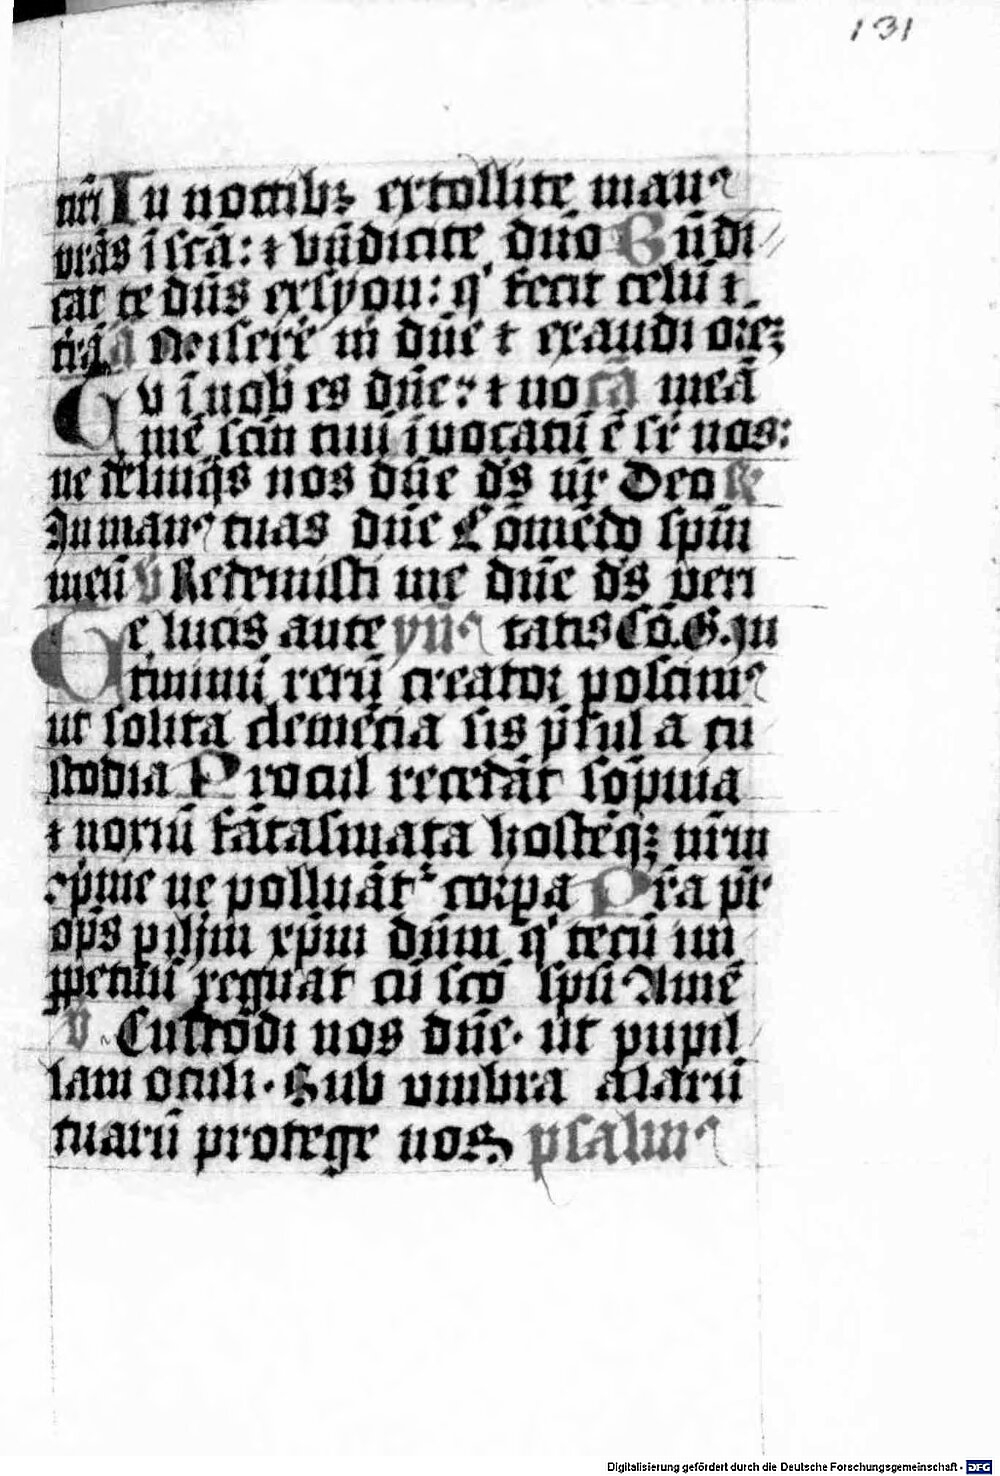 131
nr̄i In noctibꝫ extollite manꝰ
vrās ī scā: ⁊ bn̄dicite dn̄o Bn̄di
cat te dn̄s ex syon: qͥ fecit celū ⁊
t̄rā a Miserē m̄ dn̄e ⁊ exaudi orēꝫ
Tu ī nob̄ es dn̄e: ⁊ no cā meā
mē scm̄ tuū īuocatū ē sr̄ nos:
ne derelinqͣs nos dn̄e ds̄ nr̄ Deo R
In manꝰ tuas dn̄e Cōmēdo spm̄
meū v̄ Redemisti me dn̄e ds̄ veri
Te lucis ante ym̄ꝰ tatis Cō. G. In
t̄minū rerū creator poscimꝰ
ut solita clemēcia sis p̄sul a cu
stodia Procul recedāt sōpnia
⁊ noxiū fātasmata hostēqꝫ nr̄m
cōp̄me ne polluāt corpa Pr̄a pr̄
ops̄ p ihm̄ xpm̄ dn̄m qͥ tecū in
ꝑpetuū regnat cū scō spū Amē
v̄. Custodi nos dn̄e. ut pupil
lam oculi. Sub vmbra alarū
tuarū protege nos psalmꝰ
Digitalisierung gefördert durch die Deutsche Forschungsgemeinschaft - DFG